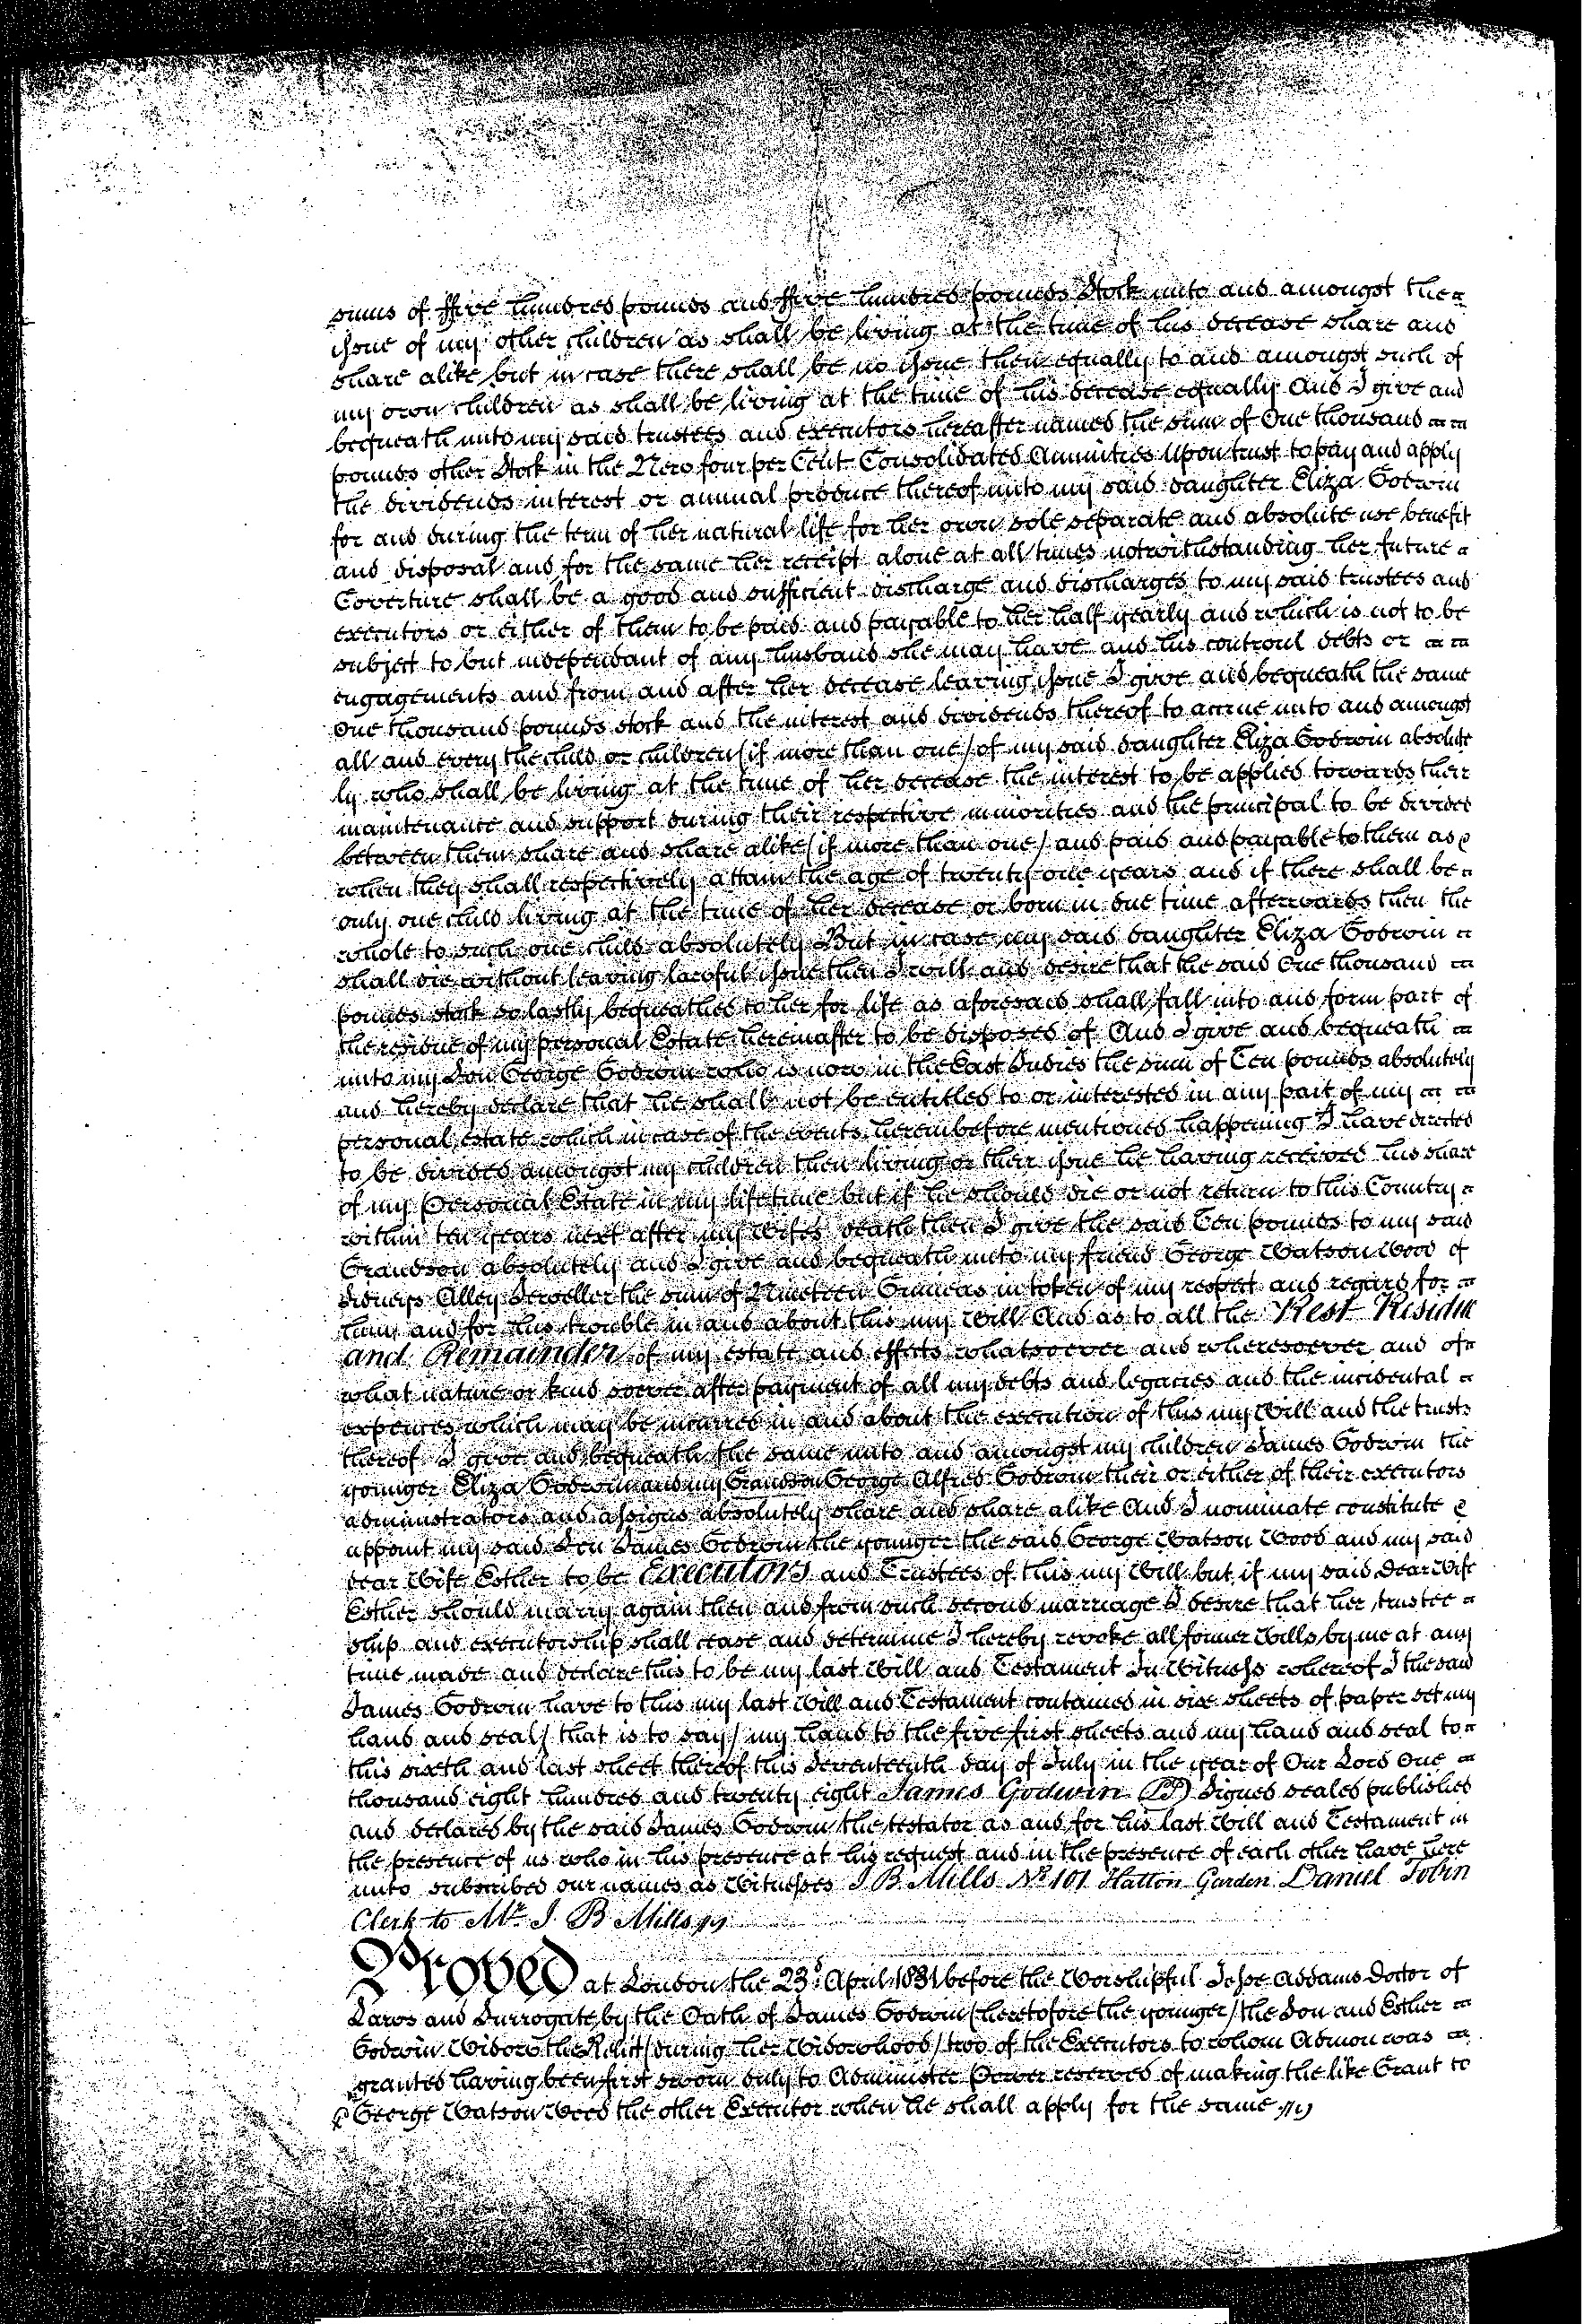 sums of ffive hundred pounds and ffive hundred pounds Stock unto and amongst the
issue of my other children as shall be living at the time of his decease share and
share alike but in case there shall be no issue then equally to and amongst such of
my own children as shall be living at the time of his decease equally And I give and
bequeath unto my said trustees and executors hereafter named the sum of One thousand
pounds other Stock in the New four per Cent Consolidated Annuities Upon trust to pay and apply
the dividends interest or annual produce thereof unto my said daughter Eliza Godwin
for and during the term of her natural life for her own sole separate and absolute use benefit
and disposal and for the same her receipt alone at all times notwithstanding her future
Coverture shall be a good and sufficient discharge and discharges to my said trustees and
executors or either of them to be paid and payable to her half yearly and which is not to be
subject to but independant of any husband she may have and his controul debts or
engagements and from and after her decease leaving issue I give and bequeath the same
One thousand pounds stock and the interest and dividends thereof to accrue unto and amongst
all and every the child or children (if more than one) of my said daughter Eliza Godwin absolute
ly who shall be living at the time of her decease the interest to be applied towards their
maintenance and support during their respective minorities and the principal to be divided
between them share and share alike (if more than one) and paid and payable to them as &
when they shall respectively attain the age of twenty one years and if there shall be
only one child living at the time of her decease or born in due time afterwards then the
whole to such one child absolutely But in case my said daughter Eliza Godwin
shall die without leaving lawful issue then I will and desire that the said One thousand
pounds stock so lastly bequeathed to her for life as aforesaid shall fall into and form part of
the residue of my personal Estate hereinafter to be disposed of And I give and bequeath
unto my Son George Godwin who is now in the East Indies the sum of Ten pounds absolutely
and hereby declare that he shall not be entitled to or interested in any part of my
personal estate which in case of the events hereinbefore mentioned happening I have directed
to be divided amongst my children then living or their issue he having received his share
of my Personal Estate in my lifetime but if he should die or not return to this Country
within ten years next after my Wife's death then I give the said Ten pounds to my said
Grandson absolutely and I give and bequeath unto my friend George Watson Wood of
Sidneys Alley Jeweller the sum of Nineteen Guineas in token of my respect and regard for
him and for his trouble in and about this my Will And as to all the Rest Residue
and Remainder of my estate and effects whatsoever and wheresoever and of
what nature or kind soever after payment of all my debts and legacies and the incidental
expences which may be incurred in and about the execution of this my Will and the trusts
thereof I give and bequeath the same unto and amongst my children James Godwin the
younger Eliza Godwin and my Grandson George Alfred Godwin their or either of their executors
administrators and assigns absolutely share and share alike And I nominate constitute &
appoint my said Son James Godwin the younger the said George Watson Wood and my said
dear Wife Esther to be Executors and Trustees of this my Will but if my said dear Wife
Esther should marry again then and from such second marriage I desire that her trustee
ship and executorship shall cease and determine I hereby revoke all former Wills by me at any
time made and declare this to be my last Will and Testament In Witness whereof I the said
James Godwin have to this my last Will and Testament contained in six sheets of paper set my
hand and seal (that is to say) my hand to the five first sheets and my hand and seal to
this sixth and last sheet thereof this Seventeenth day of July in the year of Our Lord One
thousand eight hundred and twenty eight James Godwin (LS) Signed sealed published
and declared by the said James Godwin the testator as and for his last Will and Testament in
the presence of us who in his presence at his request and in the presence of each other have here
unto subscribed our names as Witnesses J B Mills No 101 Hatton Garden Daniel Tobin
Clerk to Mr J B Mills
Proved at London the 23d April 1831 before the Worshipful Jesse Addams Doctor of
Laws and Surrogate by the Oath of James Godwin (heretofore the younger) the Son and Esther
Godwin Widow the Relict (during her Widowhood) two of the Executors to whom Admon was
granted having been first sworn duly to Administer Power reserved of making the like Grant to
George Watson Wood the other Executor when he shall apply for the same